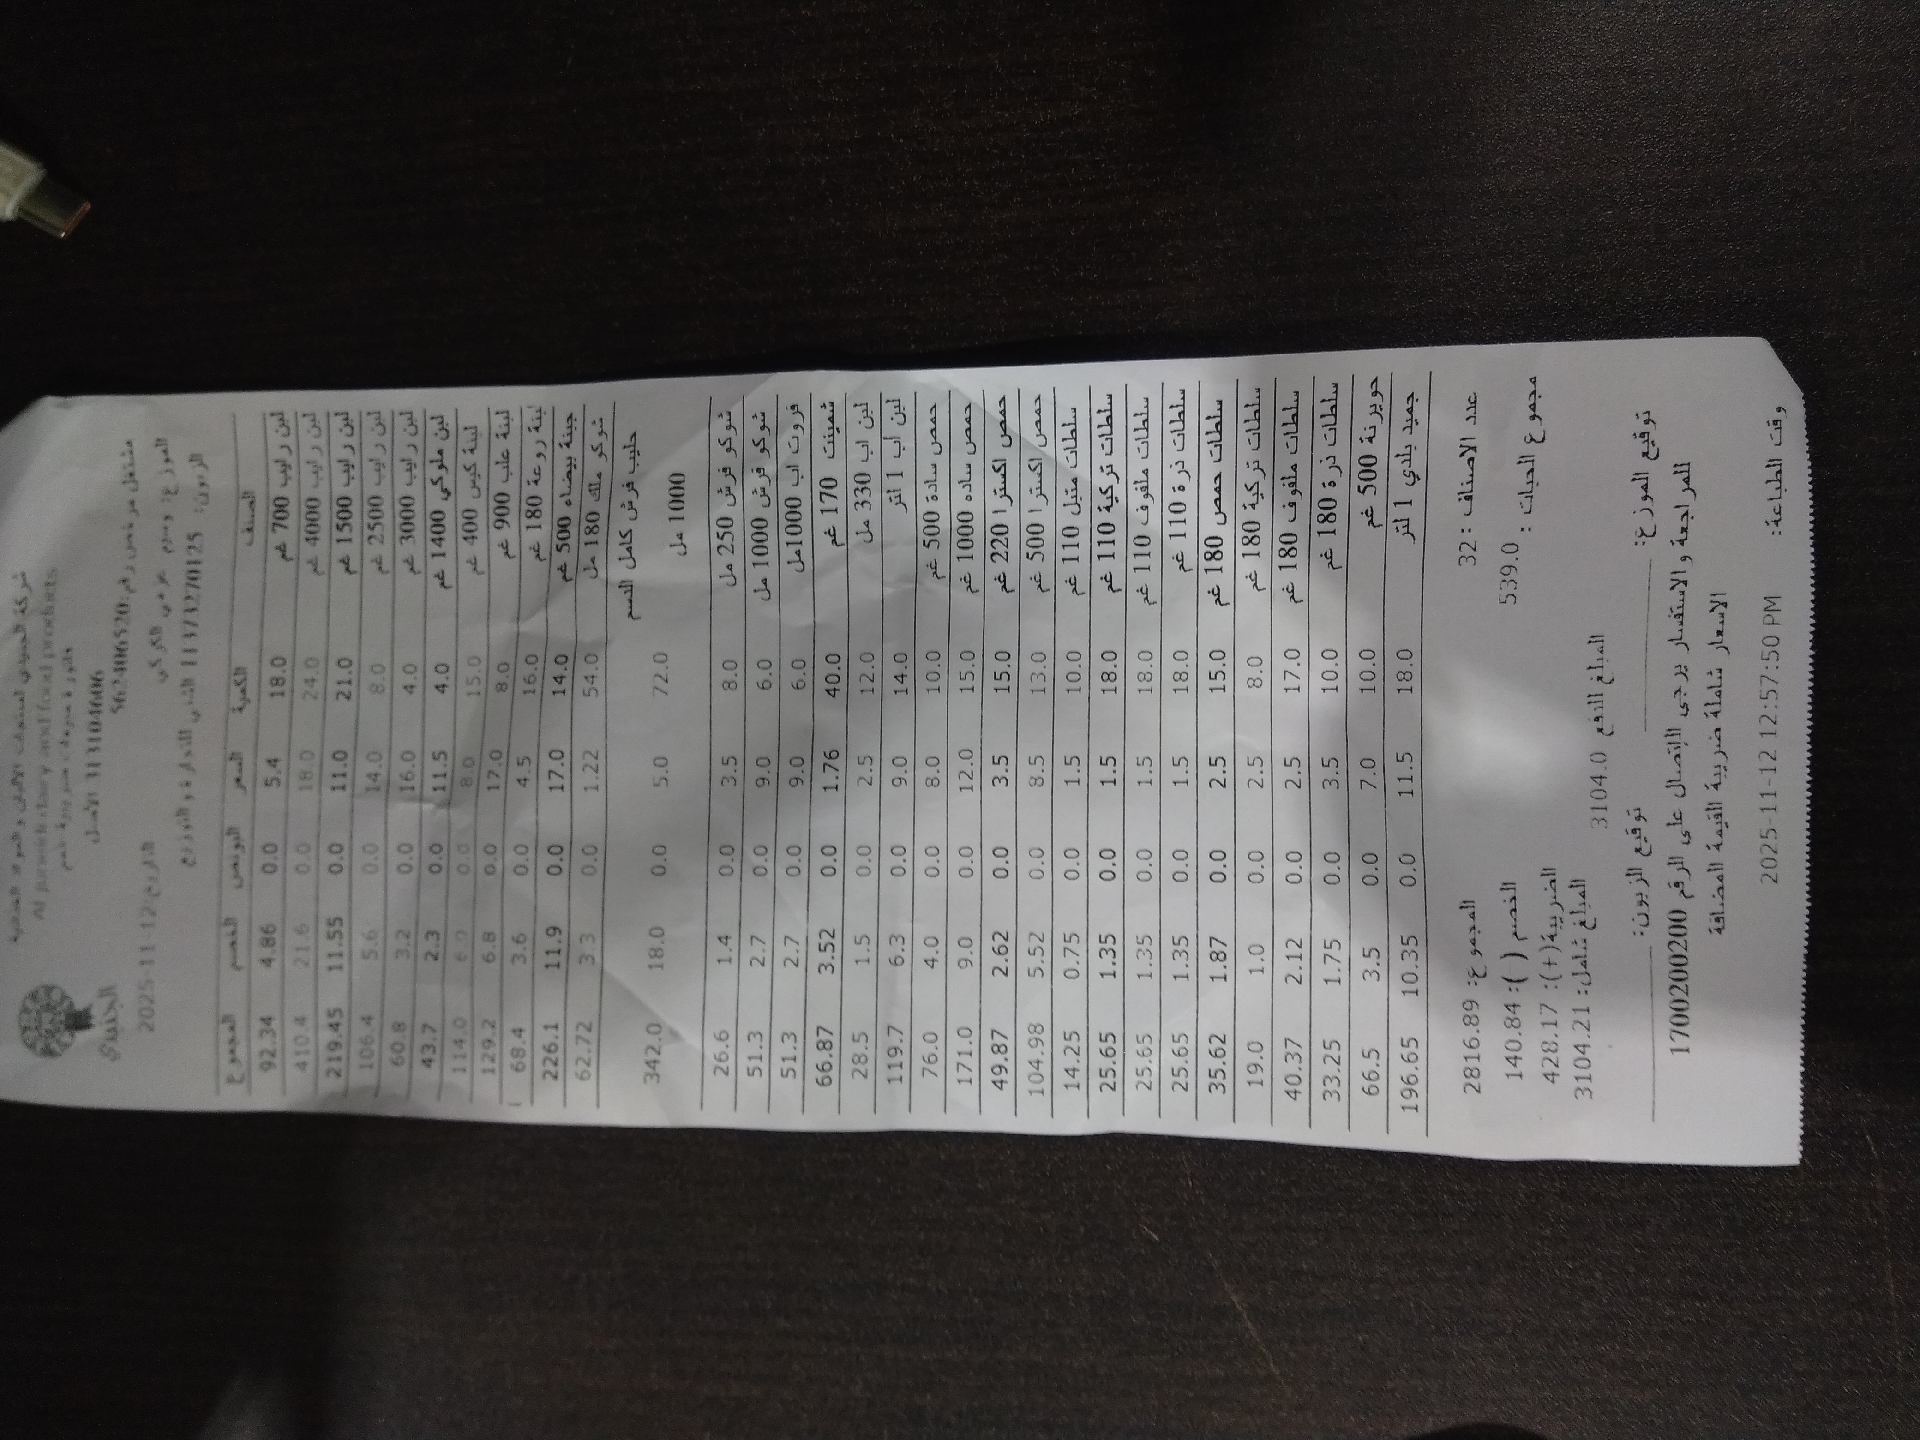 شركة الجنيدي لمنتجات الألبان و المواد الغذائية
Al juneidi dairy and food products
فاتورة مبيعات ضريبية رقم
الأصل
الجنيدي
مشتغل مرخص رقم: 562406520
التاريخ: 2025-11-12 الموزع: وسيم
الزبون: 11373270125
الصنف الكمية السعر البونص الخصم المجموع
لبن رايب 700 غم 18.0 5.4 0.0 4.86 92.34
لبن رايب 4000 غم 24.0 18.0 0.0 21.6 410.4
لبن رايب 1500 غم 21.0 11.0 0.0 11.55 219.45
لبن رايب 2500 غم 8.0 14.0 0.0 5.6 106.4
لبن رايب 3000 غم 4.0 16.0 0.0 3.2 60.8
لبن ملوكي 1400 غم 4.0 11.5 0.0 2.3 43.7
لبنة كيس 400 غم 15.0 8.0 0.0 6.0 114.0
لبنة علب 900 غم 8.0 17.0 0.0 6.8 129.2
لبنة روعة 180 غم 16.0 4.5 0.0 3.6 68.4
جبنة بيضاء 500 غم 14.0 17.0 0.0 11.9 226.1
شوكو ملك 180 مل 54.0 1.22 0.0 3.3 62.72
حليب فرش كامل الدسم
72.0 5.0 0.0 18.0 342.0
1000 مل
شوكو فرش 250 مل 8.0 3.5 0.0 1.4 26.6
شوكو فرش 1000 مل 6.0 9.0 0.0 2.7 51.3
فروت اب 1000مل 6.0 9.0 0.0 2.7 51.3
شمينت 170 غم 40.0 1.76 0.0 3.52 66.87
لبن اب 330 مل 12.0 2.5 0.0 1.5 28.5
لبن اب 1 لتر 14.0 9.0 0.0 6.3 119.7
حمص سادة 500 غم 10.0 8.0 0.0 4.0 76.0
حمص ساده 1000 غم 15.0 12.0 0.0 9.0 171.0
حمص اكسترا 220 غم 15.0 3.5 0.0 2.62 49.87
حمص اكسترا 500 غم 13.0 8.5 0.0 5.52 104.98
سلطات متبل 110 غم 10.0 1.5 0.0 0.75 14.25
سلطات تركية 110 غم 18.0 1.5 0.0 1.35 25.65
سلطات ملفوف 110 غم 18.0 1.5 0.0 1.35 25.65
سلطات ذرة 110 غم 18.0 1.5 0.0 1.35 25.65
سلطات حمص 180 غم 15.0 2.5 0.0 1.87 35.62
سلطات تركية 180 غم 8.0 2.5 0.0 1.0 19.0
سلطات ملفوف 180 غم 17.0 2.5 0.0 2.12 40.37
سلطات ذرة 180 غم 10.0 3.5 0.0 1.75 33.25
جويرنة 500 غم 10.0 7.0 0.0 3.5 66.5
جميد بلدي 1 لتر 18.0 11.5 0.0 10.35 196.65
عدد الاصناف : 32 المجموع: 2816.89
مجموع الحبات : 539.0 الخصم ( ): 140.84
الضريبة(+): 428.17
المبلغ شامل: 3104.21
المبلغ الدفع 3104.0
توقيع الموزع: توقيع الزبون:
للمراجعة و الاستفسار يرجى الاتصال على الرقم 1700200200
الاسعار شاملة ضريبة القيمة المضافة
وقت الطباعة: 2025-11-12 12:57:50 PM